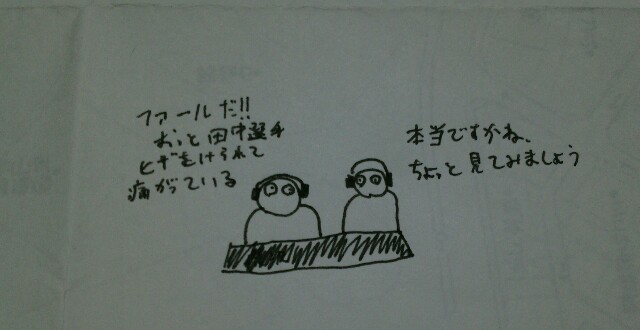 ファールだ!!
おっと田中選手
ヒザをけられて
痛がっている
本当ですかね、
ちょっと見てみましょう